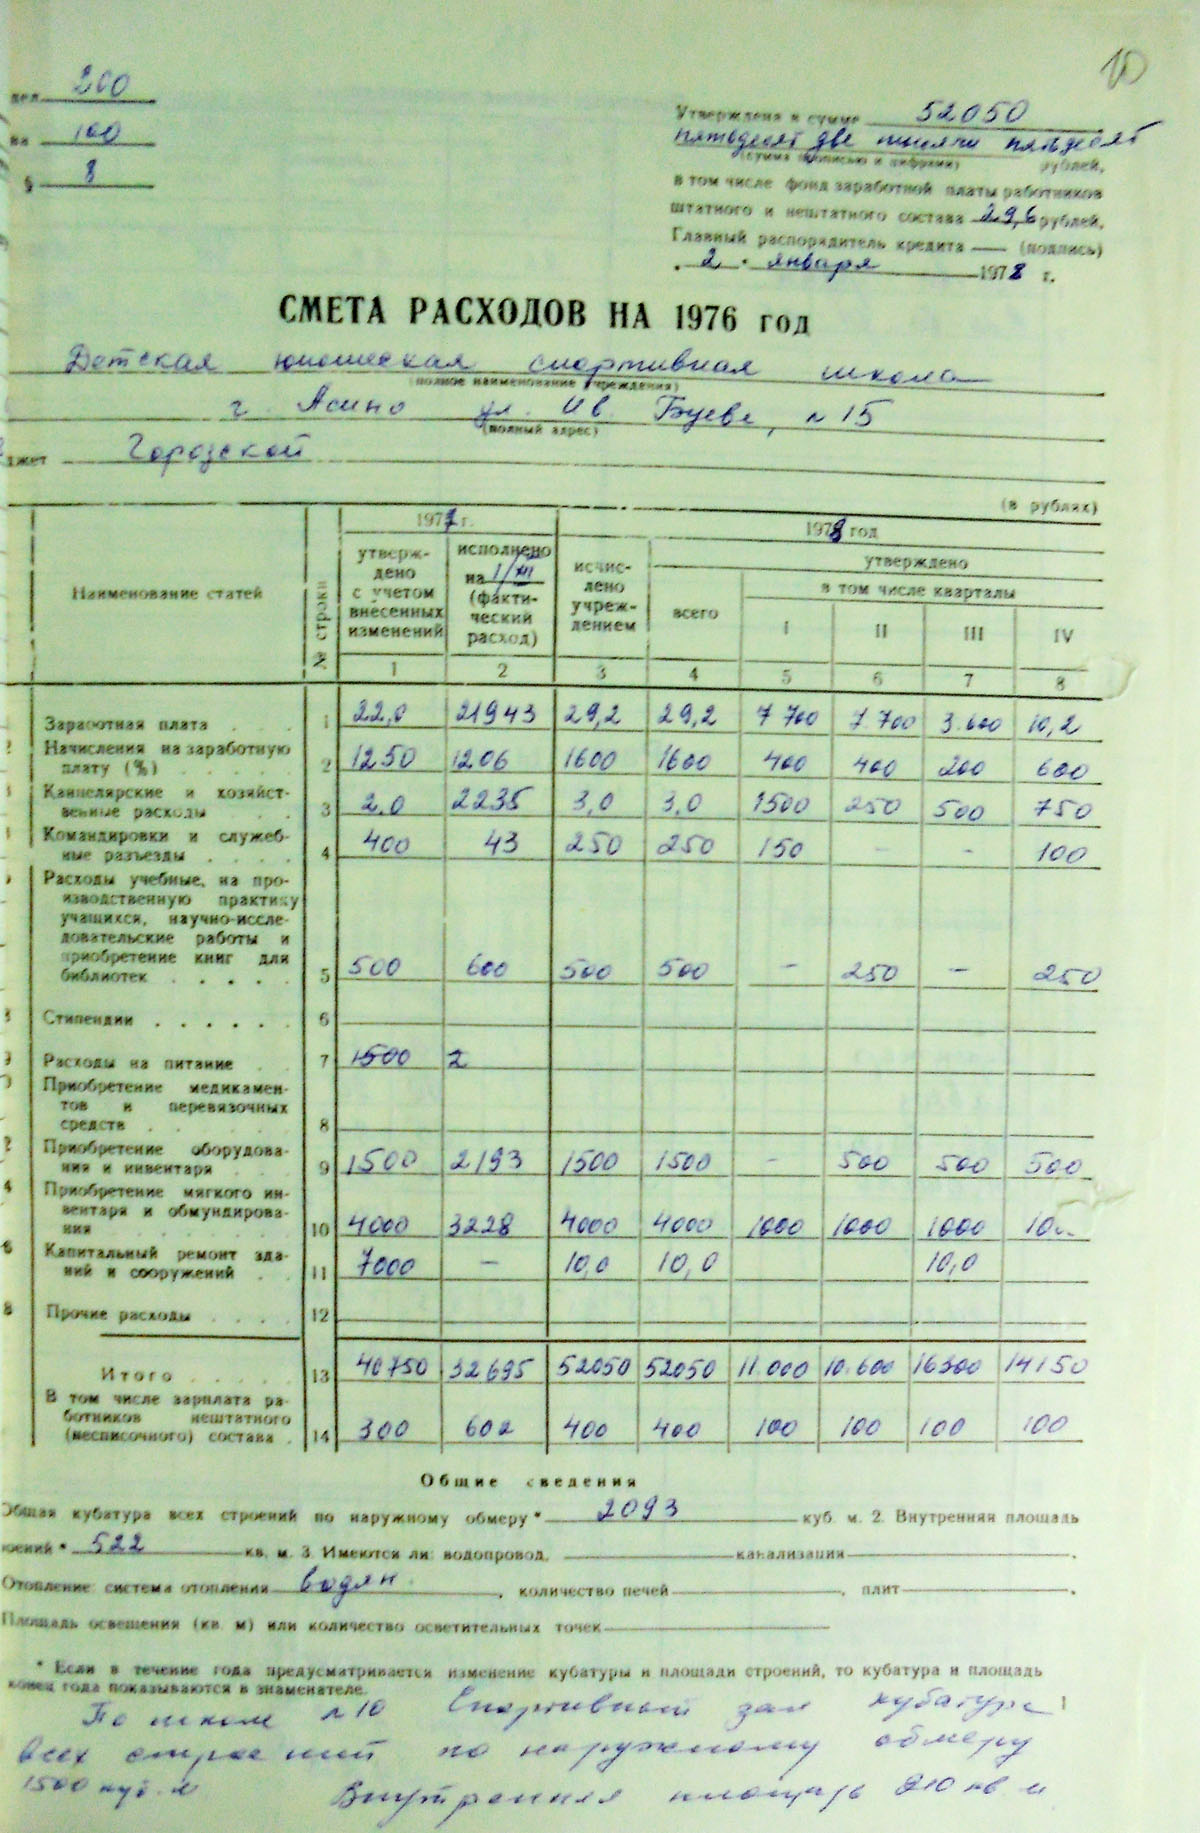 10
200
100
§ 8
Утверждена в сумме 52050
пятьдесят две тысячи пятьдесят
(сумма прописью и цифрами) рублей,
в том числе фонд заработной платы работников
штатного и нештатного состава 29,6 рублей,
Главный распорядитель кредита (подпись)
2 января 1978 г.
СМЕТА РАСХОДОВ НА 1976 год
Детская юношеская спортивная школа
(полное наименование учреждения)
г. Асино ул. Ив. Буева, №15
(полный адрес)
Городской
(в рублях)
Наименование статей № строки 1977 г. 1978 год
утверждено с учетом внесенных изменений исполнено на 1/XII (фактический расход) исчислено учреждением утверждено
всего в том числе кварталы
I II III IV
1 2 3 4 5 6 7 8
Заработная плата 1 22,0 21943 29,2 29,2 7700 7.700 3.600 10,2
Начисления на заработную
плату (%) 2 1250 1206 1600 1600 400 400 200 600
Канцелярские и хозяйст-
венные расходы 3 2,0 2235 3,0 3,0 1500 250 500 750
Командировки и служеб-
ные разъезды 4 400 43 250 250 150 - - 100
Расходы учебные, на про-
изводственную практику
учащихся, научно-иссле-
довательские работы и
приобретение книг для
библиотек 5 500 600 500 500 - 250 - 250
Стипендии 6
Расходы на питание 7 1500 2
Приобретение медикамен-
тов и перевязочных
средств 8
Приобретение оборудова-
ния и инвентаря 9 1500 2193 1500 1500 - 500 500 500
Приобретение мягкого ин-
вентаря и обмундирова-
ния 10 4000 3228 4000 4000 1000 1000 1000
Капитальный ремонт зда-
ний и сооружений 11 7000 - 10,0 10,0 10,0
Прочие расходы 12
Итого 13 40750 32695 52050 52050 11.000 10.600 16300 14150
В том числе зарплата ра-
ботников нештатного
(несписочного) состава 14 300 602 400 400 100 100 100 100
Общие сведения
Общая кубатура всех строений по наружному обмеру* 2093 куб. м. 2. Внутренняя площадь
522 кв. м. 3. Имеются ли: водопровод, канализация
Отопление: система отопления водян. количество печей, плит
Площадь освещения (кв. м) или количество осветительных точек
* Если в течение года предусматривается изменение кубатуры и площади строений, то кубатура и площадь
конец года показываются в знаменателе.
По школе №10 Спортивный зал кубатура
всех строений по наружному обмеру
1500 куб. м Внутренняя площадь 210 кв м